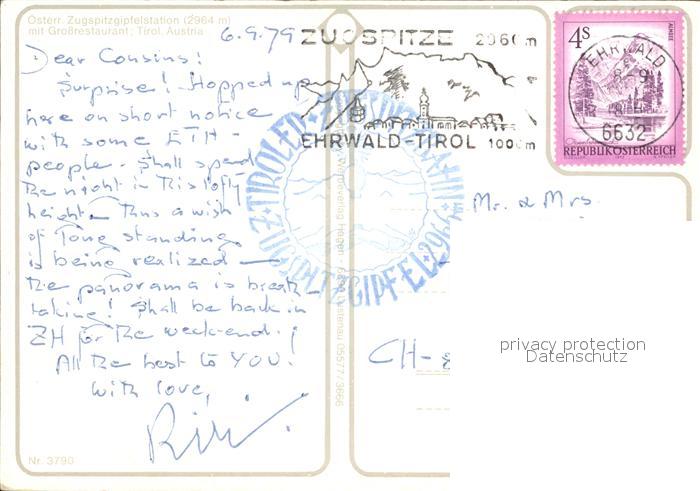 Österr. Zugspitzgipfelstation (2964 m)
mit Großrestaurant; Tirol, Austria
6.9.79
Dear Cousins!
Surprise! Hopped up
here on short notice
with some ETH-
people. Shall spend
the night in this lofty
height. Thus a wish
of long standing
is being realized —
the panorama is breath-
taking! Shall be back in
ZH for the week-end.
All the best to YOU!
With love,
Nr. 3790
ZUGSPITZE 2960m
EHRWALD-TIROL 1000m
TIROLER ZUGSPITZBAHN
ZUGSPITZGIPFEL 2964 m
05577/3666
4S
EHRWALD
6632
REPUBLIK ÖSTERREICH
Mr. & Mrs.
CH-
privacy protection
Datenschutz